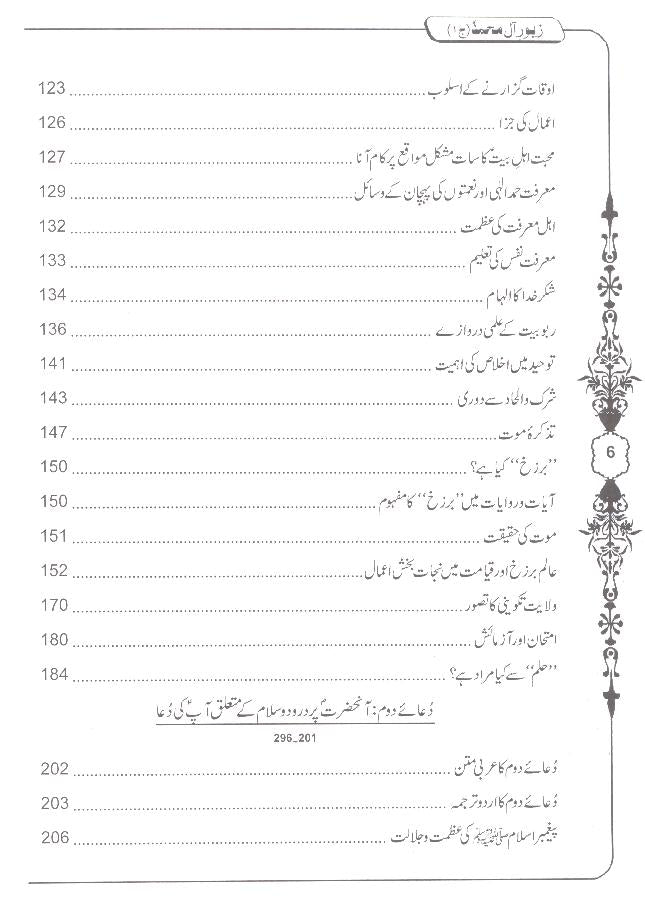 زبور آل محمدؑ (ج ۱)
اوقات گزارنے کے اسلوب ........ 123
اعمال کی جزا ........ 126
محبت اہل بیتؑ کا سات مشکل مواقع پر کام آنا ........ 127
معرفت حمد الٰہی اور نعمتوں کی پہچان کے وسائل ........ 129
اہل معرفت کی عظمت ........ 132
معرفت نفس کی تعلیم ........ 133
شکر خدا کا الہام ........ 134
ربوبیت کے علمی دروازے ........ 136
توحید میں اخلاص کی اہمیت ........ 141
شرک و الحاد سے دوری ........ 143
تذکرۂ موت ........ 147
‘‘برزخ’’ کیا ہے؟ ........ 150
آیات و روایات میں ‘‘برزخ’’ کا مفہوم ........ 150
موت کی حقیقت ........ 151
عالم برزخ اور قیامت میں نجات بخش اعمال ........ 152
ولایت تکوینی کا تصور ........ 170
امتحان اور آزمائش ........ 180
‘‘حلم’’ سے کیا مراد ہے؟ ........ 184
6
دُعائے دوم: آنحضرتؐ پر درود و سلام کے متعلق آپؑ کی دُعا
296_201
دُعائے دوم کا عربی متن ........ 202
دُعائے دوم کا اردو ترجمہ ........ 203
پیغمبر اسلام ﷺ کی عظمت و جلالت ........ 206